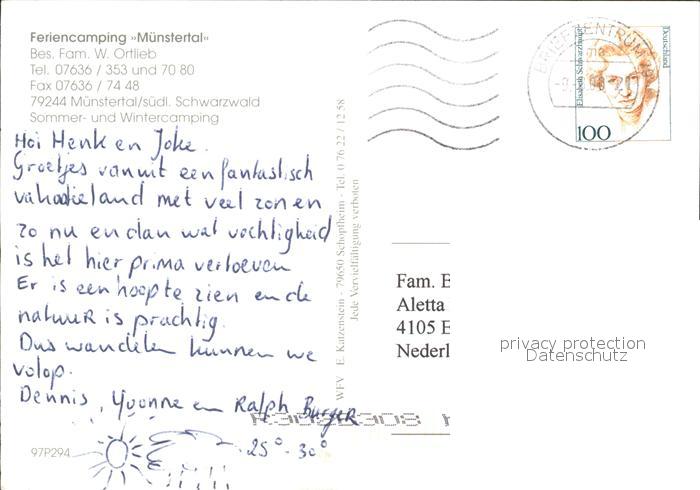 Feriencamping »Münstertal«
Bes. Fam. W. Ortlieb
Tel. 07636 / 353 und 70 80
Fax 07636 / 74 48
79244 Münstertal/südl. Schwarzwald
Sommer- und Wintercamping
Hoi Henk en Joke.
Groetjes vanuit een fantastisch
vakantieland met veel zon en
zo nu en dan wat vochtigheid
is het hier prima vertoeven
Er is een hoop te zien en de
natuuR is prachtig.
Dus wandelen kunnen we
volop.
Dennis, Yvonne en Ralph BurgeR
25° - 30°
97P294
WFV E. Katzenstein - 79650 Schopfheim - Tel. 0 76 22 / 12 58
Jede Vervielfältigung verboten
BRIEFZENTRUM
Elisabeth Schwarzhaupt
Deutschland
100
Fam. 
Aletta
4105 E
Nederl
privacy protection
Datenschutz